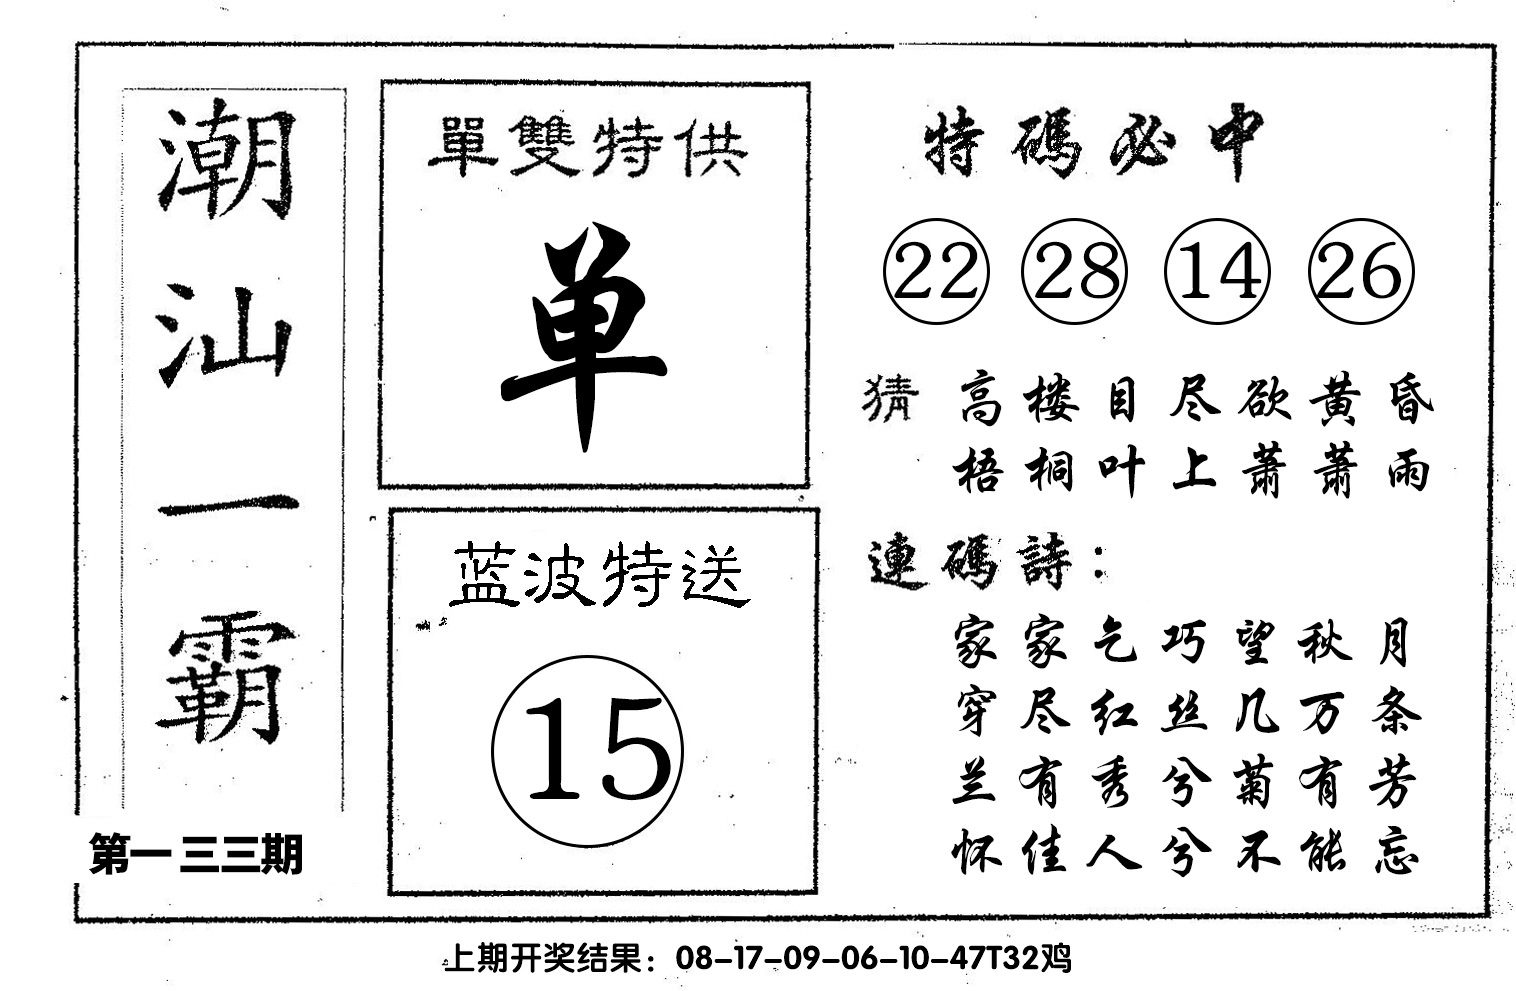 潮汕一霸
第一三三期
單雙特供
单
蓝波特送
15
特碼必中
22 28 14 26
猜 高楼目尽欲黄昏
梧桐叶上萧萧雨
連碼詩：
家家乞巧望秋月
穿尽红丝几万条
兰有秀兮菊有芳
怀佳人兮不能忘
上期开奖结果：08-17-09-06-10-47T32鸡